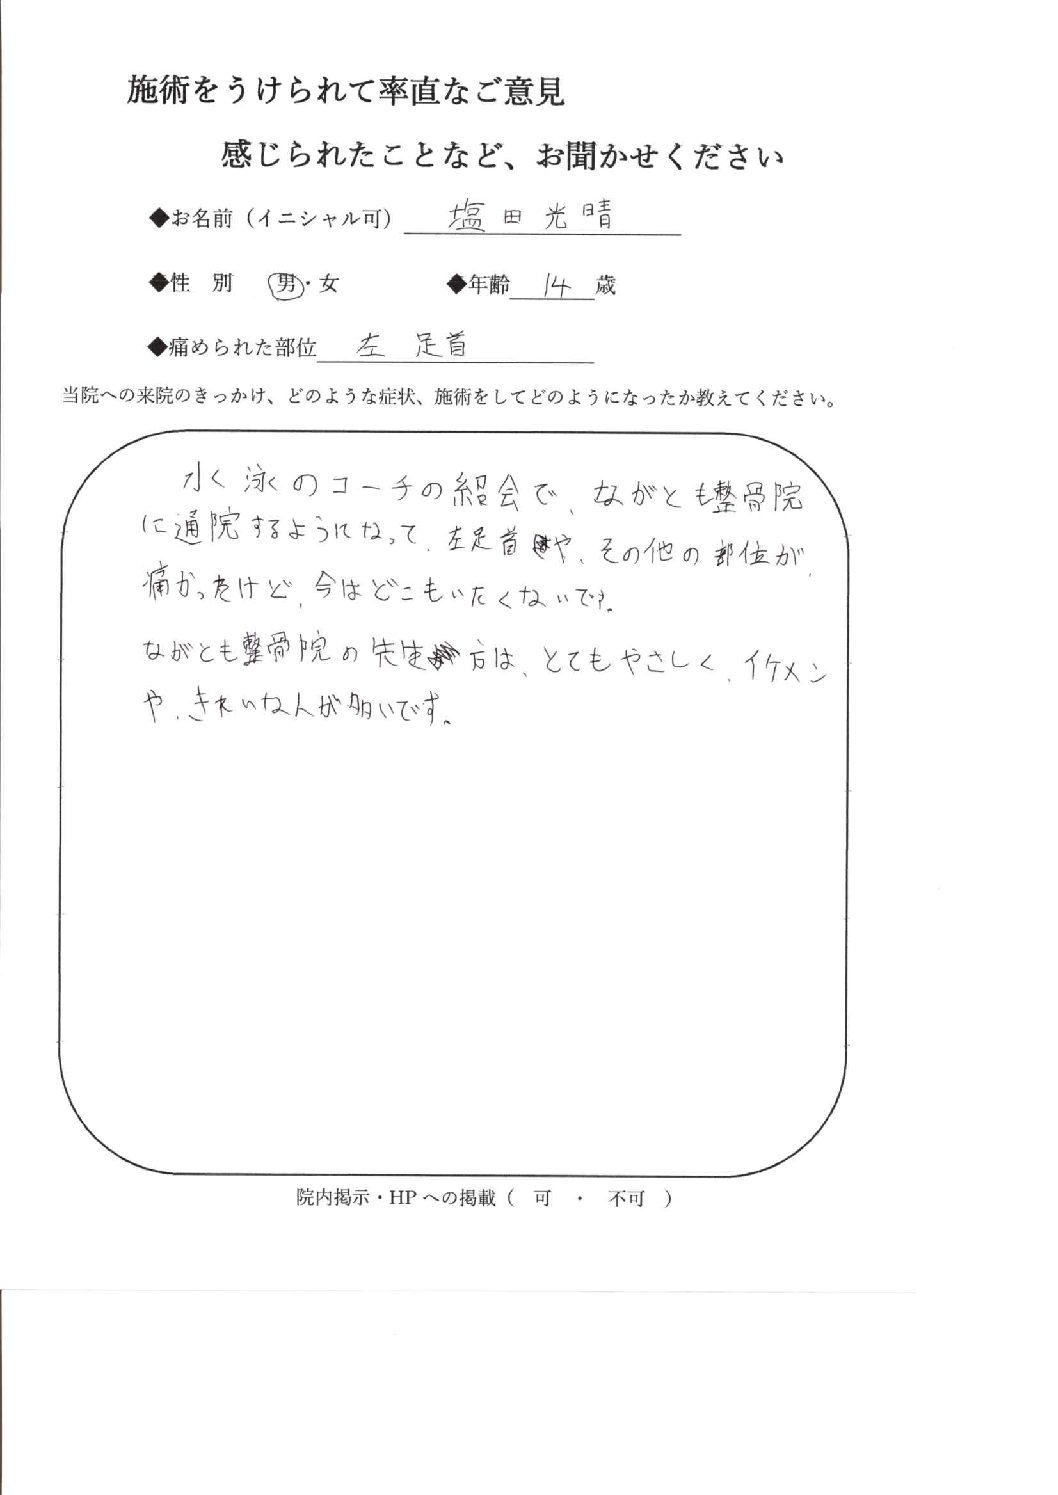 施術をうけられて率直なご意見
感じられたことなど、お聞かせください
◆お名前（イニシャル可） 塩田光晴
◆性　別　男・女　◆年齢 14 歳
◆痛められた部位 左 足首
当院への来院のきっかけ、どのような症状、施術をしてどのようになったか教えてください。
水く泳のコーチの紹会で、ながとも整骨院
に通院するようになって、左足首や、その他の部位が、
痛かったけど、今はどこもいたくないです。
ながとも整骨院の先生方は、とてもやさしく、イケメン
や、きれいな人が多いです。
院内掲示・HPへの掲載（　可　・　不可　）